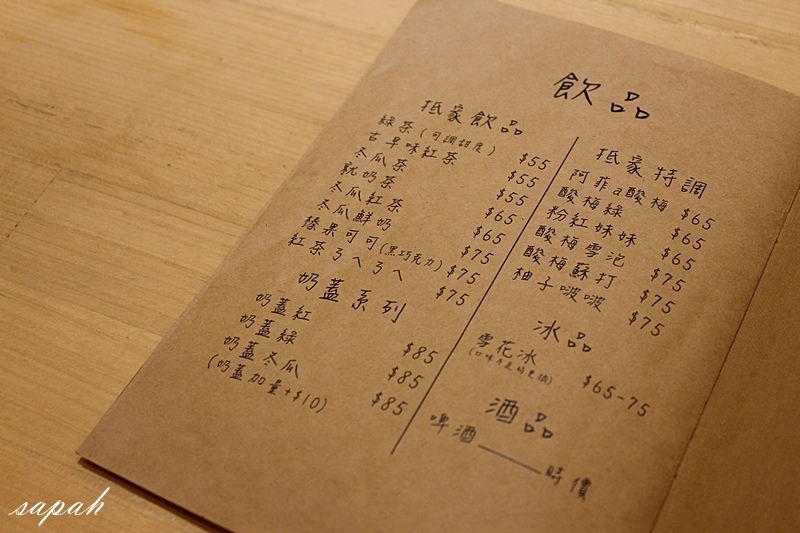 飲品
抵家飲品
綠茶(可調甜度) $55
古早味紅茶 $55
冬瓜茶 $55
就奶茶 $65
冬瓜紅茶 $65
冬瓜鮮奶 $75
榛果可可(黑巧克力) $75
紅茶ㄋㄟㄋㄟ $75
奶蓋系列
奶蓋紅 $85
奶蓋綠 $85
奶蓋冬瓜 $85
(奶蓋加量+$10)
抵家特調
阿菲a酸梅 $65
酸梅綠 $65
粉紅妹妹 $65
酸梅雪泡 $75
酸梅蘇打 $75
柚子啵啵 $75
冰品
雪花冰 $65-75
酒品
啤酒——時價
sapah